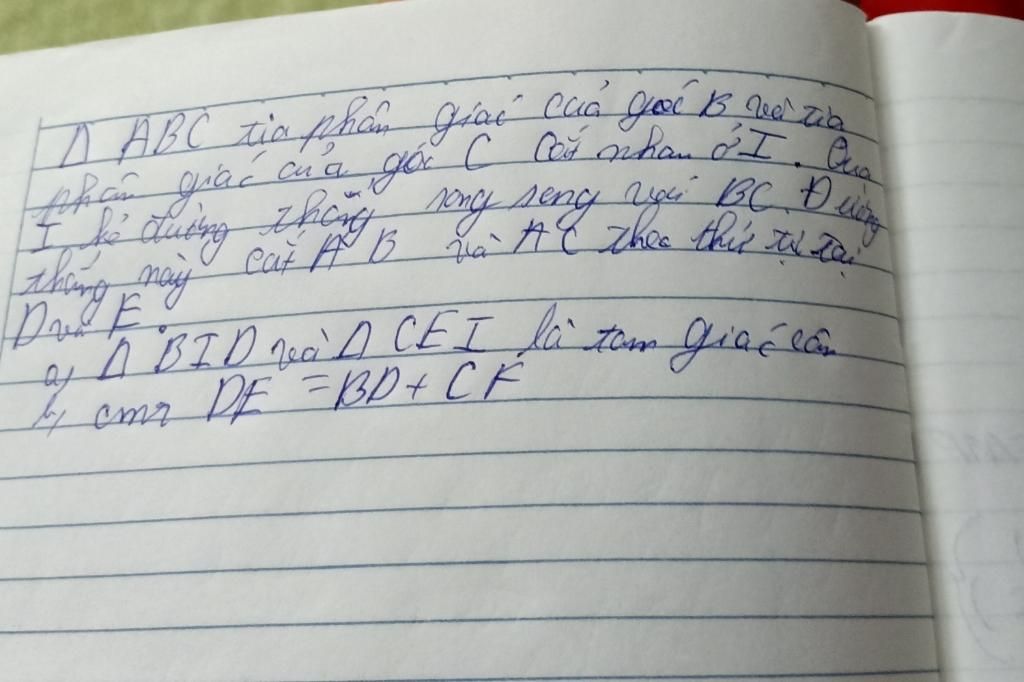 Δ ABC tia phân giác của góc B và tia
phân giác của góc C cắt nhau ở I. Qua
I kẻ đường thẳng song song với BC. Đường
thẳng này cắt AB và AC theo thứ tự tại
D và E.
a, Δ BID và Δ CEI là tam giác cân
b, cmr DE = BD + CE